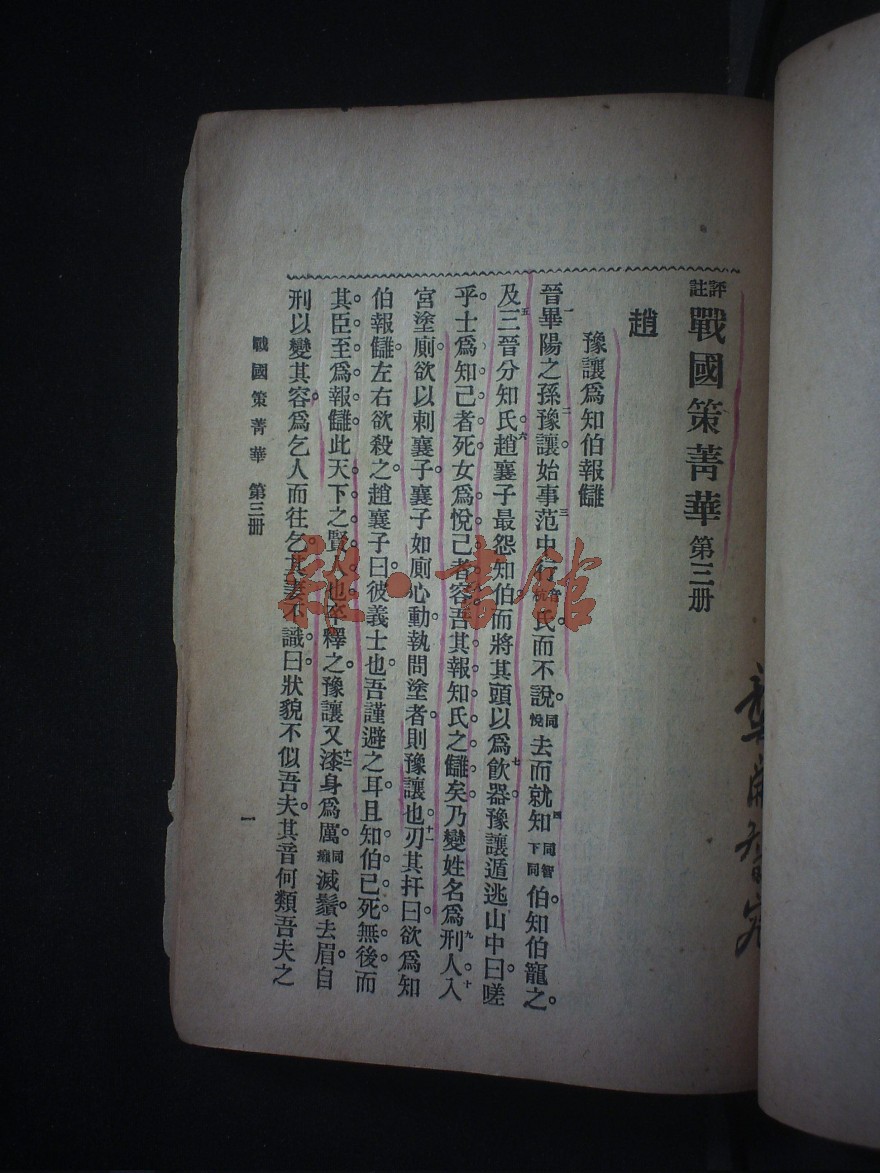 評註戰國策菁華 第三册
趙
豫讓爲知伯報讎
晉畢陽之孫豫讓。始事范中行音杭氏而不說。同悅去而就知同智下同伯。知伯寵之。
及三晉分知氏。趙襄子最怨知伯。而將其頭以爲飲器。豫讓遁逃山中。曰。嗟
乎。士爲知己者死。女爲悅己者容。吾其報知氏之讎矣。乃變姓名爲刑人。入
宮塗廁。欲以刺襄子。襄子如廁。心動。執問塗者。則豫讓也。刃其扞。曰。欲爲知
伯報讎。左右欲殺之。趙襄子曰。彼義士也。吾謹避之耳。且知伯已死無後。而
其臣至爲報讎。此天下之賢人也。卒釋之。豫讓又漆身爲厲。同癩滅鬚去眉。自
刑以變其容。爲乞人而往乞。其妻不識。曰。狀貌不似吾夫。其音何類吾夫之
戰國策菁華 第三册
一
雜·書館